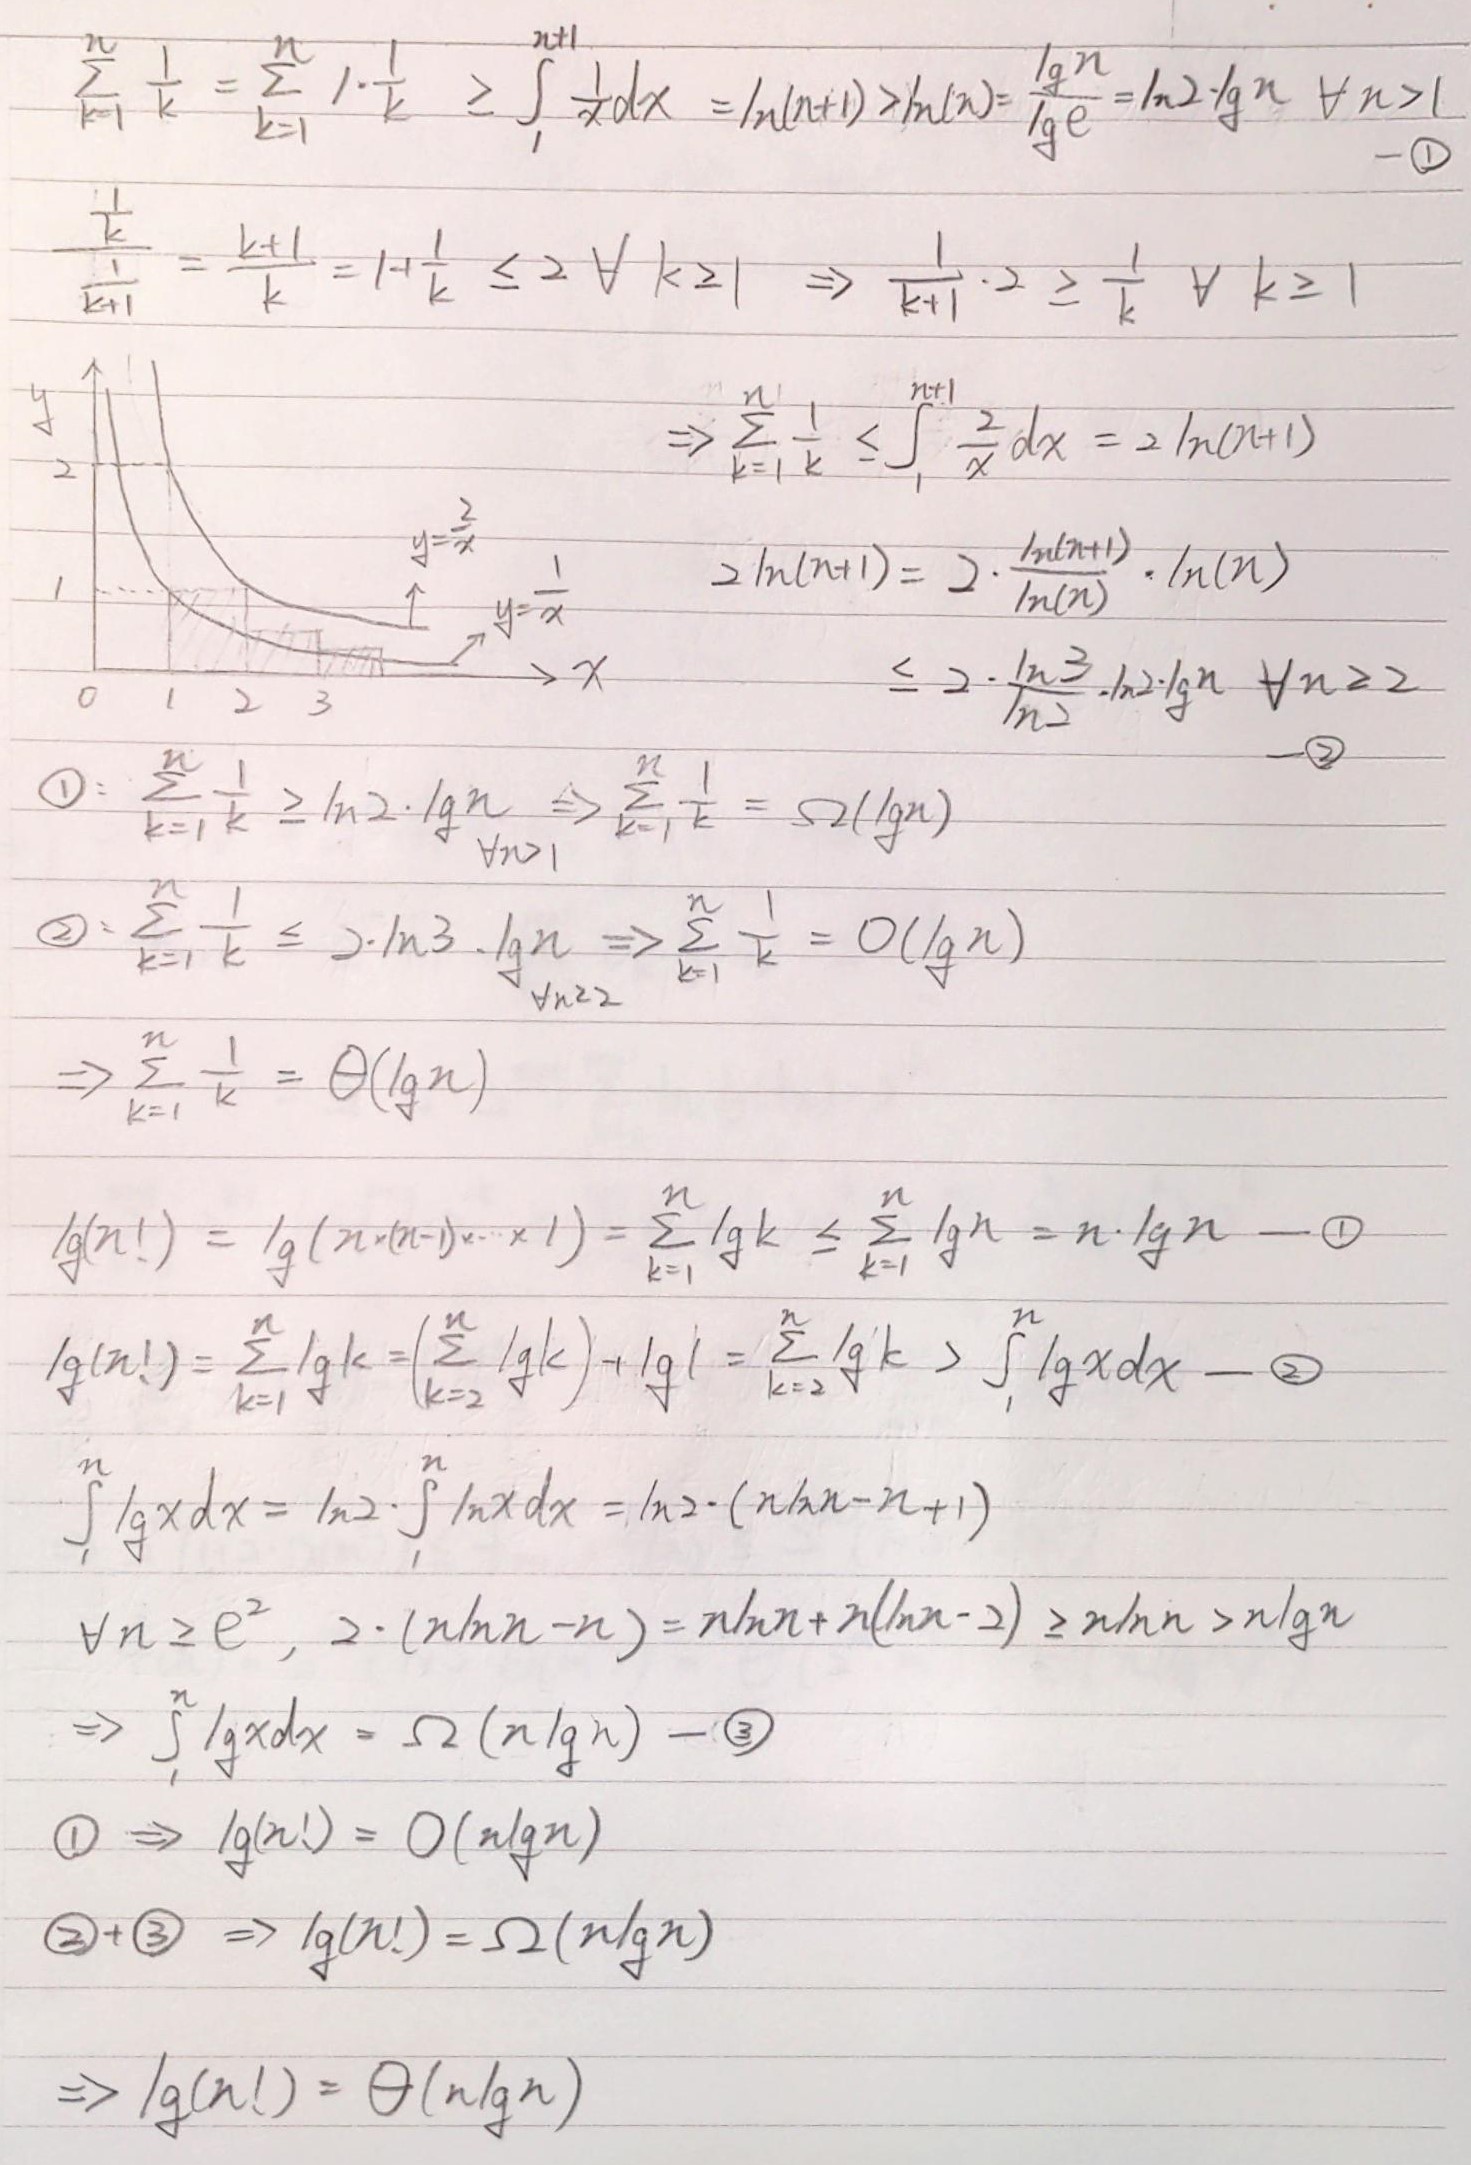 ∑_{k=1}^{n} 1/k = ∑_{k=1}^{n} 1·1/k ≥ ∫_1^{n+1} 1/x dx = ln(n+1) > ln(n) = lg n / lg e = ln2·lg n ∀ n>1
—①
(1/k)/(1/(k+1)) = (k+1)/k = 1+1/k ≤ 2 ∀ k≥1 ⇒ 1/(k+1)·2 ≥ 1/k ∀ k≥1
y
2
1
0 1 2 3
x
y=2/x
y=1/x
⇒ ∑_{k=1}^{n} 1/k ≤ ∫_1^{n+1} 2/x dx = 2 ln(n+1)
2 ln(n+1) = 2·ln(n+1)/ln(n)·ln(n)
≤ 2·ln3/ln2·ln2·lg n ∀n≥2
—②
①: ∑_{k=1}^{n} 1/k ≥ ln2·lg n ∀n>1 ⇒ ∑_{k=1}^{n} 1/k = Ω(lg n)
②: ∑_{k=1}^{n} 1/k ≤ 2·ln3·lg n ∀n≥2 ⇒ ∑_{k=1}^{n} 1/k = O(lg n)
⇒ ∑_{k=1}^{n} 1/k = θ(lg n)
lg(n!) = lg(n×(n-1)×···×1) = ∑_{k=1}^{n} lg k ≤ ∑_{k=1}^{n} lg n = n·lg n —①
lg(n!) = ∑_{k=1}^{n} lg k = (∑_{k=2}^{n} lg k) + lg 1 = ∑_{k=2}^{n} lg k > ∫_1^n lg x dx —②
∫_1^n lg x dx = ln2·∫_1^n ln x dx = ln2·(n ln n - n + 1)
∀n ≥ e², 2·(n ln n - n) = n ln n + n(ln n - 2) ≥ n ln n > n lg n
⇒ ∫_1^n lg x dx = Ω(n lg n) —③
① ⇒ lg(n!) = O(n lg n)
②+③ ⇒ lg(n!) = Ω(n lg n)
⇒ lg(n!) = θ(n lg n)